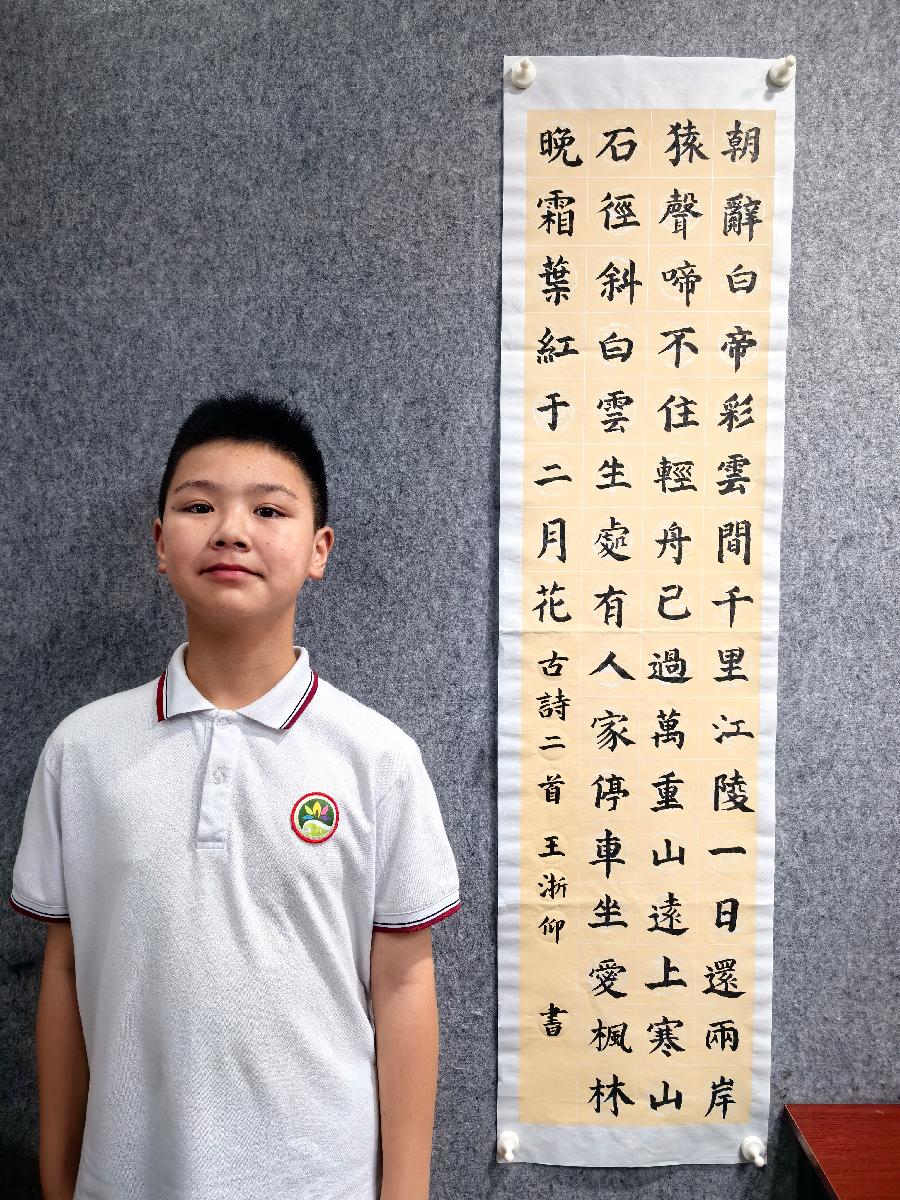 朝辭白帝彩雲間千里江陵一日還兩岸
猿聲啼不住輕舟已過萬重山遠上寒山
石徑斜白雲生處有人家停車坐愛楓林
晚霜葉紅于二月花古詩二首王浙仰書